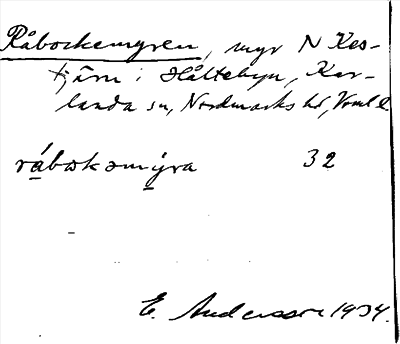 Råbockemyren, myr N Kes-
tjärn i Håltebyn, Kar-
landa sn, Nordmarks hd, Vrml l.
råbokəmýra 32
E. Andersson 1934.